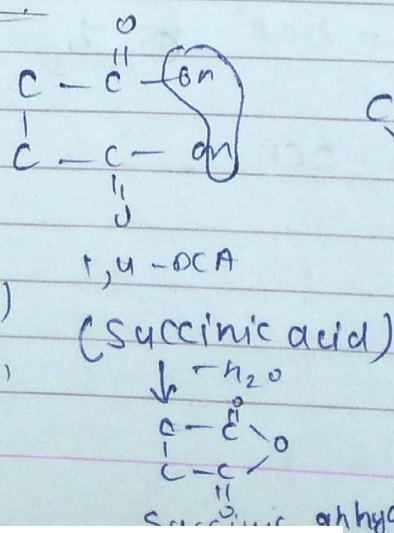 O
||
C — C — OH
|
C — C — OH
||
O
1,4 - DCA
(Succinic acid)
↓ - H2O
O
||
C — C \
| O
C — C /
||
O
Succinic anhyd
C
)